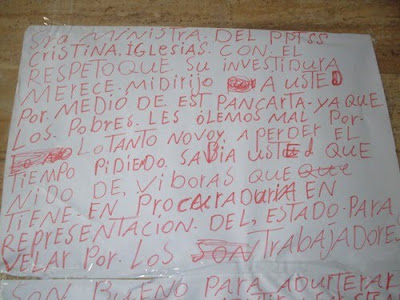 SRA MINISTRA. DEL PPTSS
CRISTINA. IGLESIAS. CON. EL
RESPETO QUE. SU INVESTIDURA
MERECE. MI DIRIJO A USTED
POR. MEDIO DE. EST PANCARTA. YA QUE
LOS. POBRES. LES ÓLEMOS MAL POR.
LO TANTO NO VOY. A PERDER EL
TIEMPO PIDIENDO. SABIA USTED QUE
NIDO DE, VIBORAS QUE QUE
TIENE. EN PROCURADURIA EN
REPRESENTACION. DEL, ESTADO. PARA
VELAR POR. LOS TRABAJADORES
SON BUENO PARA ADULTERAR